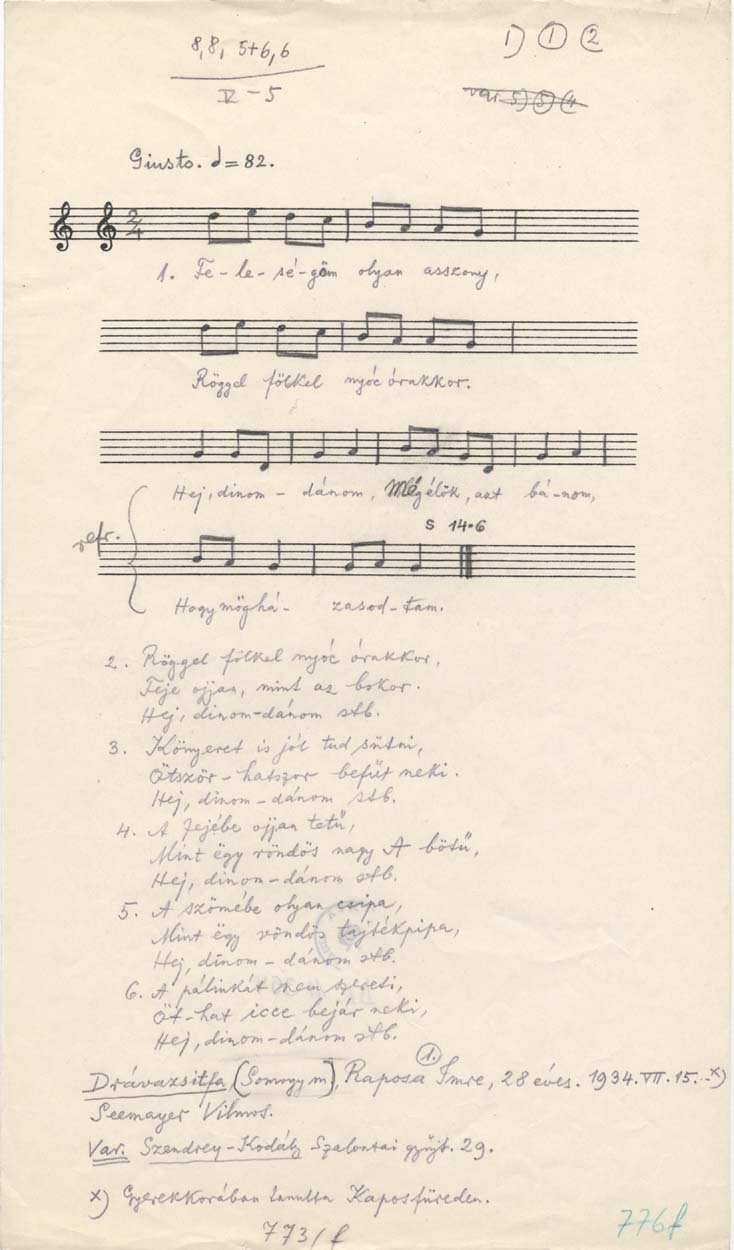 8,8, 5+6,6
V - 5
1) 1 2
var 5) 5 4
Giusto. = 82.
2/4
1. Fe-le-sé-göm olyan asszony,
Röggel fölkel nyóc órakkor.
Hej, dinom-dánom, Mégélök, azt bá-nom,
S 14.6
refr.
Hogy möghá- zasod-tam.
2. Röggel fölkel nyóc órakkor,
Feje ojjan, mint az bokor.
Hej, dinom-dánom stb.
3. Könyeret is jól tud sütni,
Ötször-hatszor befüt neki.
Hej, dinom-dánom stb.
4. A fejébe ojjan tetű,
Mint ëgy röndös nagy A bötű,
Hej, dinom-dánom stb.
5. A szömébe olyan csipa,
Mint ëgy vöndös tajtékpipa,
Hej, dinom-dánom stb.
6. A pálinkát nem szereti,
Öt-hat icce bejár neki,
Hej, dinom-dánom stb.
1.
Drávazsitfa (Somogy m), Raposa Imre, 28 éves. 1934.VII.15. x)
Seemayer Vilmos.
Var. Szendrey-Kodály Szalontai gyűjt. 29.
x) Gyerekkorában tanulta Kaposfüreden.
773/f
776f